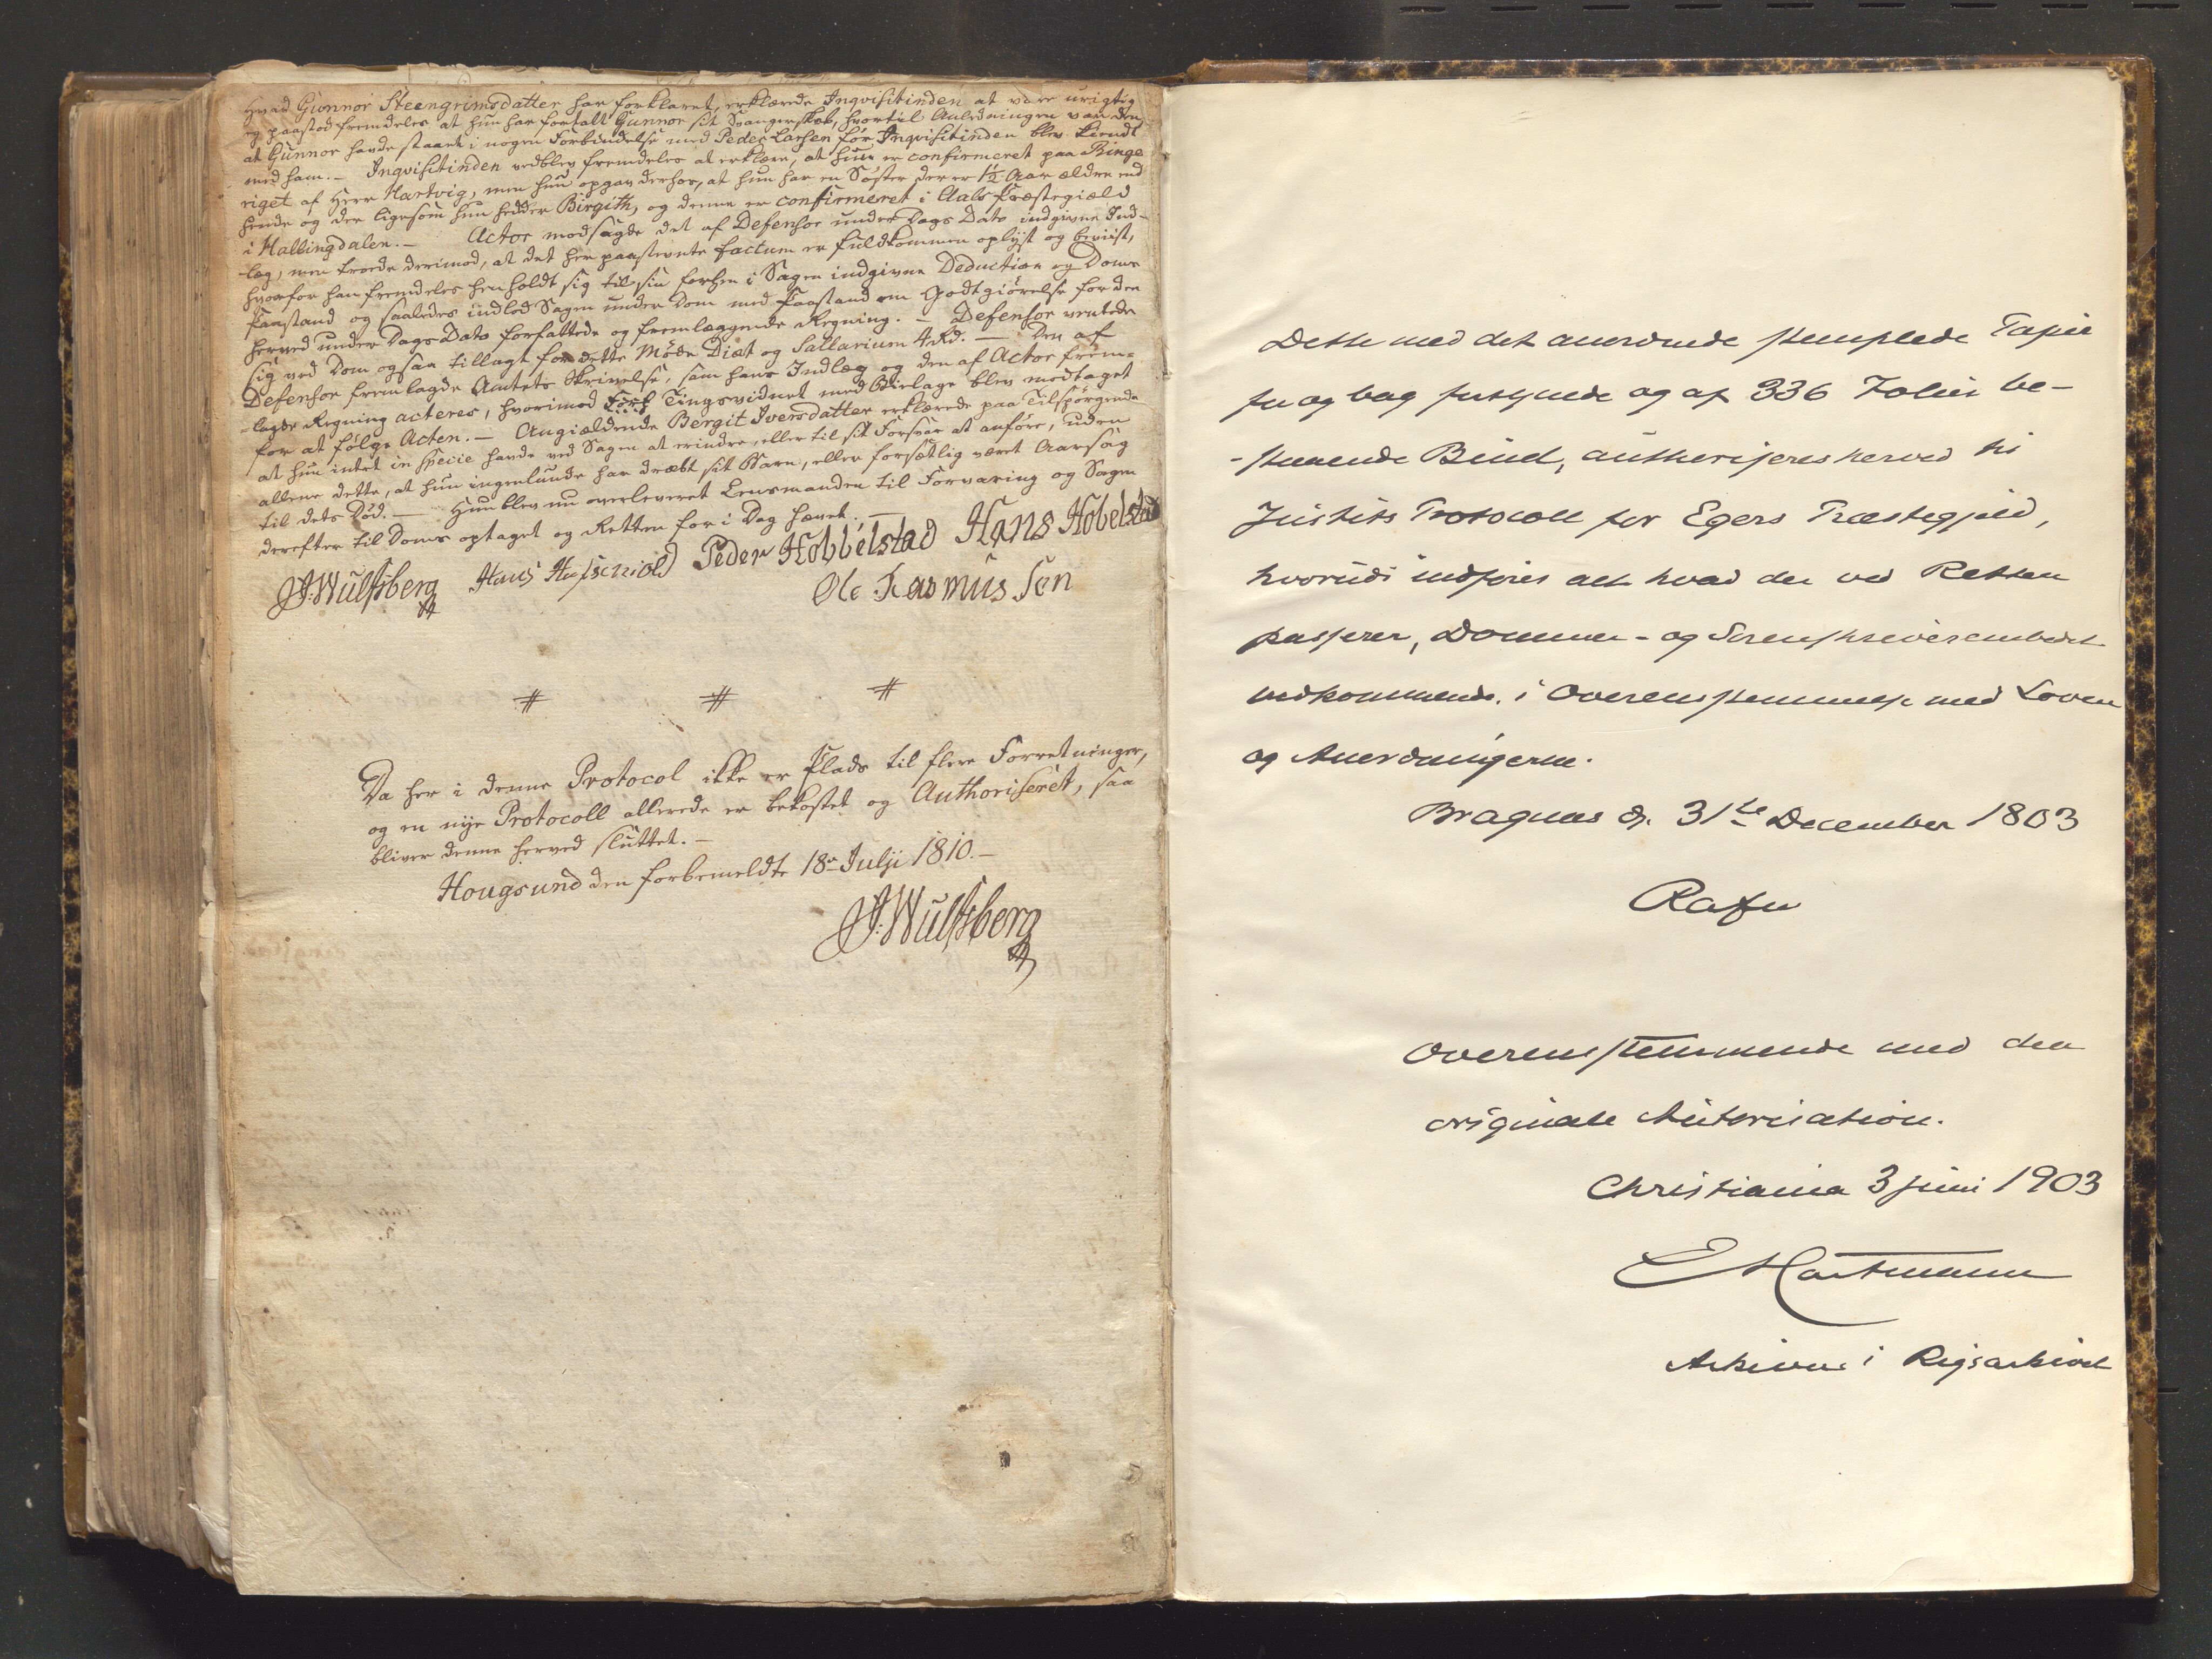 Hvad Gunnor Steengrimsdatter har forklaret, erklærede Inqvisitinden at være urigtig
og paastod fremdeles at hun har fortalt Gunnor sit Svangerskab, hvortil Anledningen var den,
at Gunnor havde staaet i nogen Forbindelse med Peder Larsen før Inqvisitinden blev kiendt
med ham. – Inqvisitinden vedblev fremdeles at erklære, at hun er confirmeret paa Ringe
riget af Herr Hartvig, men hun opgav derhos, at hun har en Søster der er 1½ Aar ældre end
hende og der ligesom hun hedder Birgith, og denne er confirmeret i Aals Præstegield
i Hallingdalen. – Actor modsagde det af Defensor under Dags Dato indgivne Ind-
-læg, men troede derimod, at det her paastevnte factum er fuldkommen oplyst og beviist,
hvorfor han fremdeles henholdt sig til sin forhen i Sagen indgivne Deduction og Doms
Paastand og saaledes indlod Sagen under Dom med Paastand om Godtgiørelse for den
herved under Dags Dato forfattede og fremlæggende Regning. – Defensor ventede
sig ved Dom ogsaa tillagt for dette Møde Diæt og Sallarium 4 Rd. – Den af
Defensor fremlagde Amtets Skrivelse, samt hans Indlæg og den af Actor frem-
-lagde Regning acteres, hvorimod Tingsvidnet med Bielage blev modtaget
for at følge Acten. – Angiældende Bergit Iversdatter erklærede paa Tilspørgende
at hun intet in specie havde ved Sagen at erindre, eller til sit Forsvar at anføre, uden
allene dette, at hun ingenlunde har dræbt sit Barn, eller forsætlig været Aarsag
til dets Død. – Hun blev nu overleveret Lensmanden til Forvaring og Sagen
derefter til Doms optaget og Retten for i Dag hævet. –
J. Wulfsberg Hans Peder Hobbelstad Hans Hobelstad
Ole Rasmus Sen
Da her i denne Protocol ikke er Plads til flere Forretninger,
og en nye Protocoll allerede er bekostet og Authoriseret, saa
bliver denne herved sluttet. –
Hougsund den forbemeldte 18de Julji 1810. –
J. Wulfsberg
Dette med det anordnede stemplede Papir
for og bag forsynede og af 336 Folier be-
-staaende Bind, authoriseres herved til
Justits Protocoll for Egers Præstegjeld,
hvorudi indføres alt hvad der ved Retten
passerer, Dommer- og Sorenskriverembedet
vedkommende, i Overensstemmelse med Loven
og Anordningerne.
Bragnes d. 31te December 1803
Rafn
Overensstemmende med den
originale Autorisation.
Christiania 3 juni 1903
E Hartmann
Arkivar i Rigsarkivet